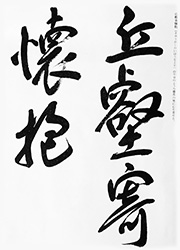 丘壑寄
懷抱